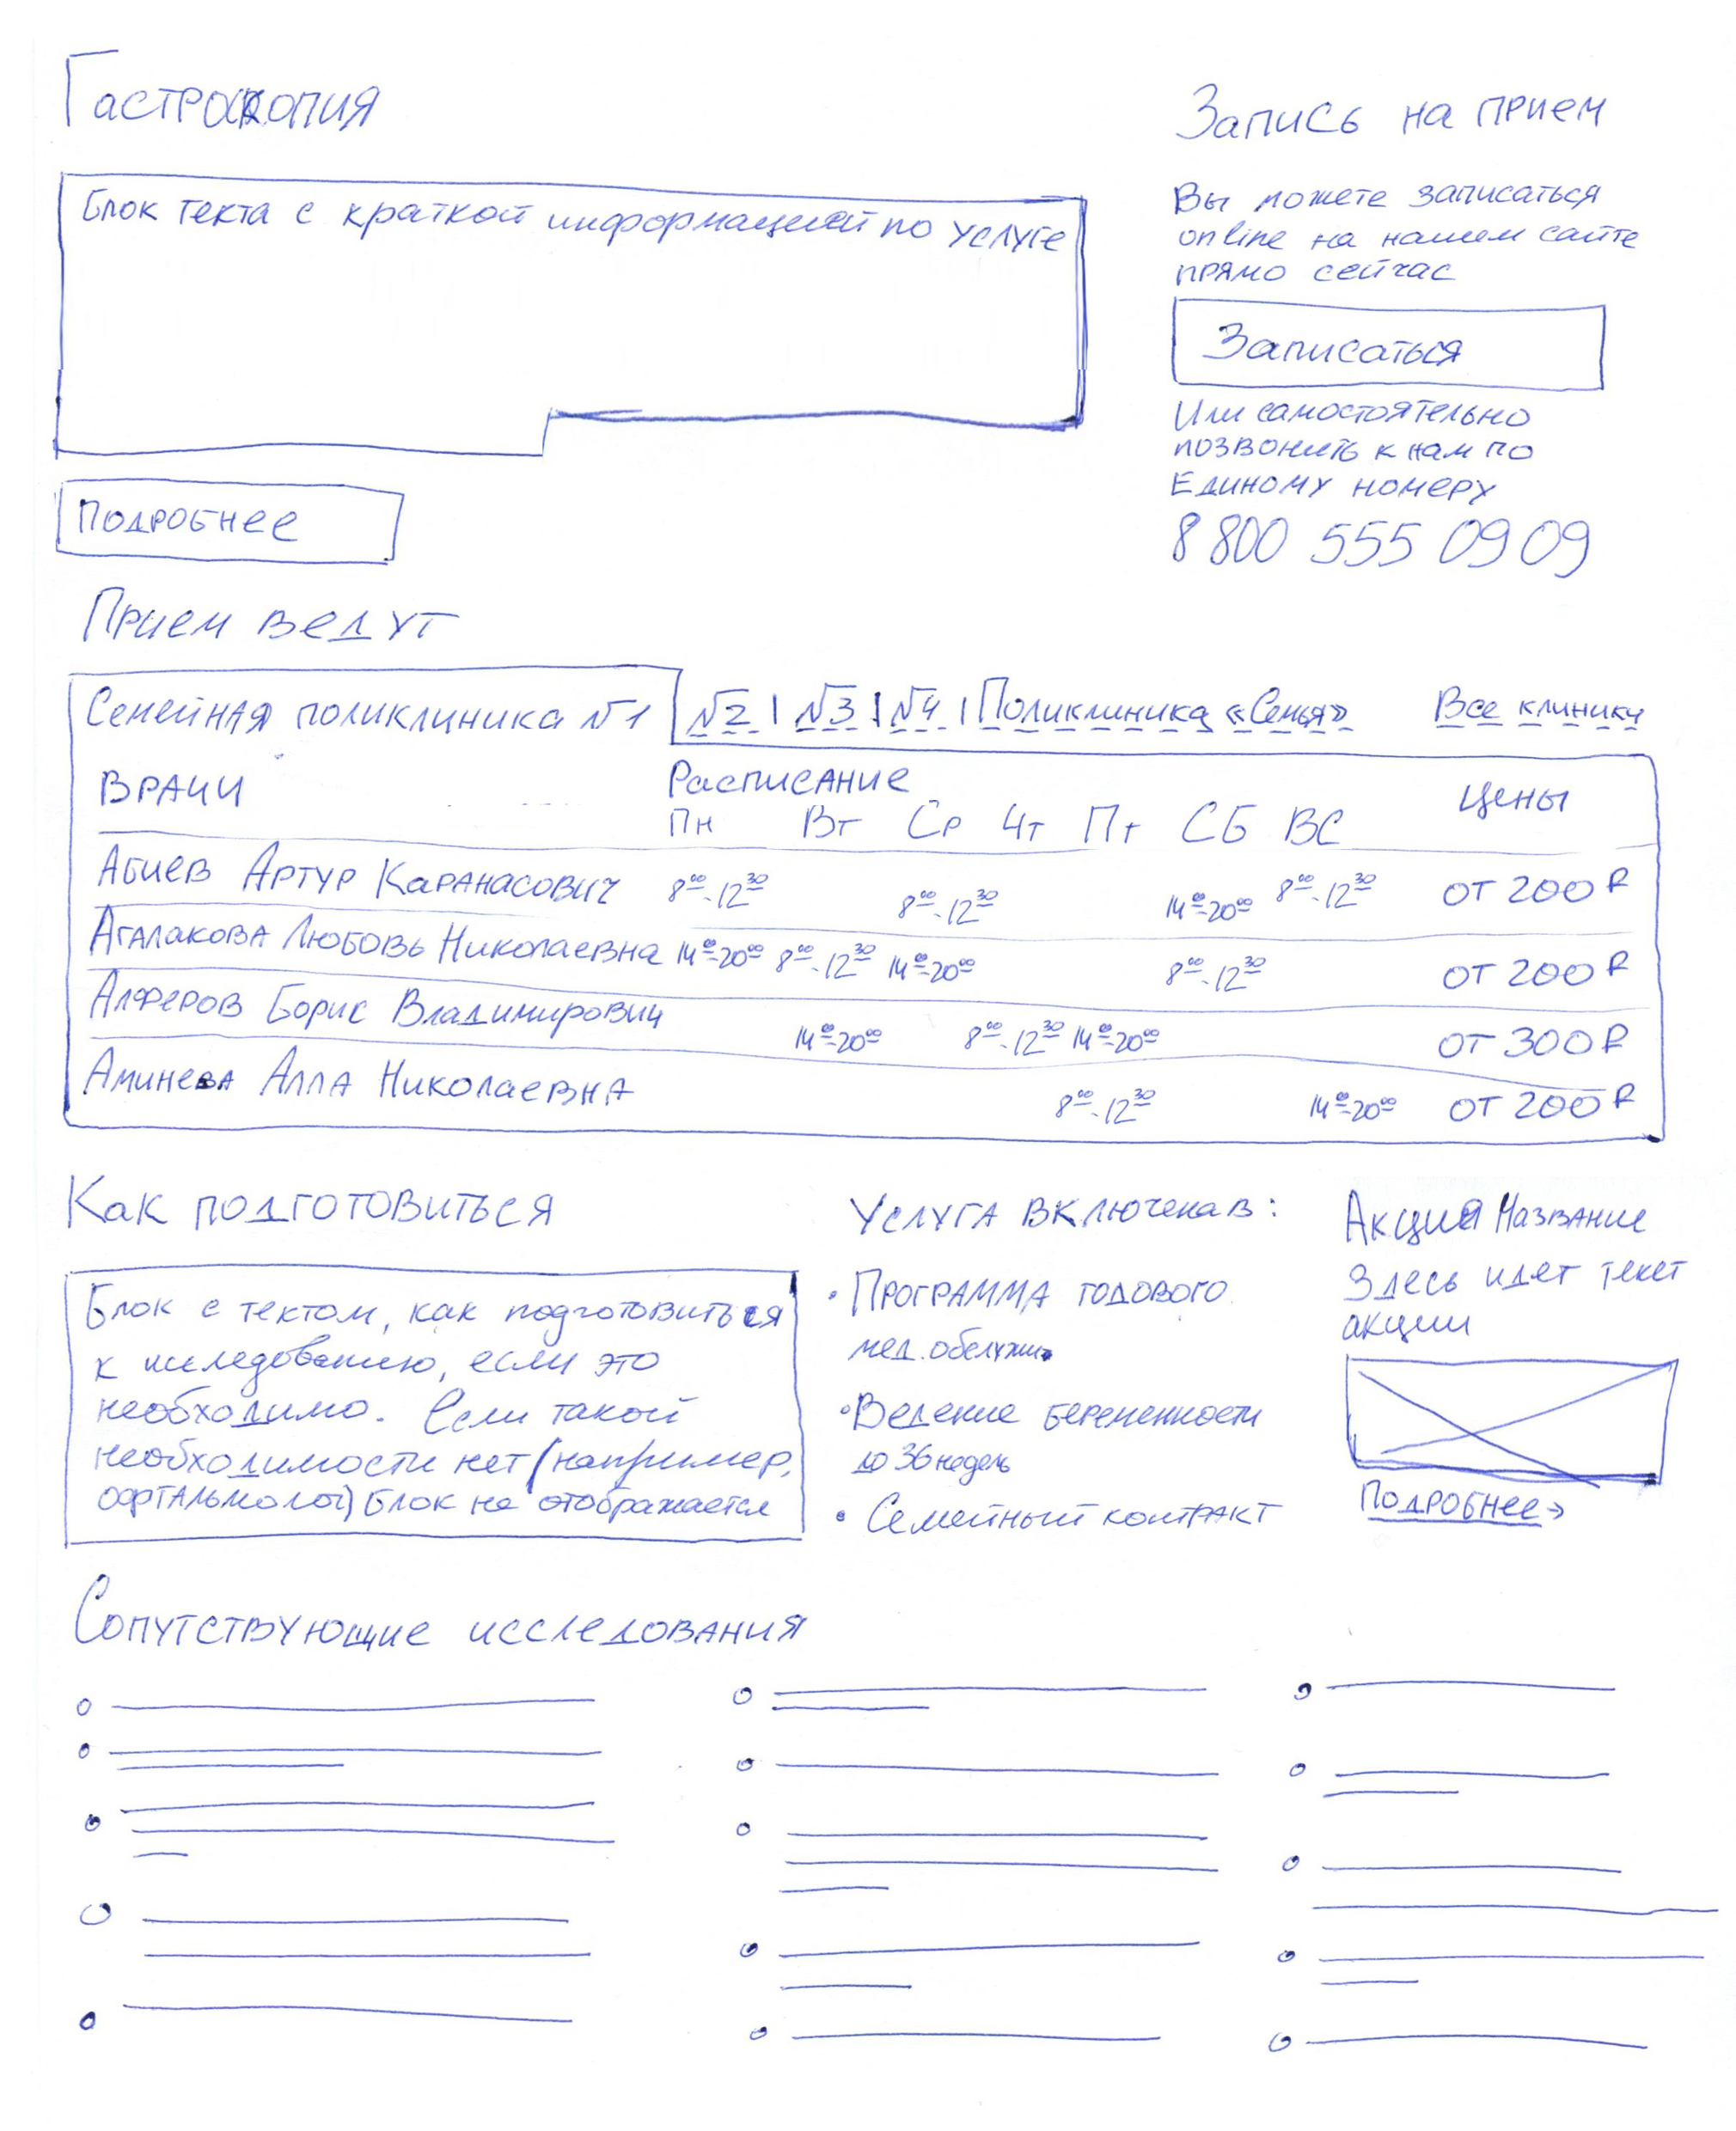 Гастроскопия
Блок текта с краткой информацией по услуге
Подробнее
Запись на прием
Вы можете записаться
online на нашем сайте
прямо сейчас
Записаться
Или самостоятельно
позвонить к нам по
Единому номеру
8 800 555 09 09
Прием ведут
Семейная поликлиника №1 №2 | №3 | №4 | Поликлиника «Семья» Все клиники
Врачи Расписание Цены
Пн Вт Ср Чт Пт Сб Вс
Абиев Артур Каранасович 8⁰⁰-12³⁰ 8⁰⁰-12³⁰ 14⁰⁰-20⁰⁰ 8⁰⁰-12³⁰ от 200 ₽
Агалакова Любовь Николаевна 14⁰⁰-20⁰⁰ 8⁰⁰-12³⁰ 14⁰⁰-20⁰⁰ 8⁰⁰-12³⁰ от 200 ₽
Алферов Борис Владимирович 14⁰⁰-20⁰⁰ 8⁰⁰-12³⁰ 14⁰⁰-20⁰⁰ от 300 ₽
Аминева Алла Николаевна 8⁰⁰-12³⁰ 14⁰⁰-20⁰⁰ от 200 ₽
Как подготовиться
Блок с тектом, как подготовиться
к иследованию, если это
необходимо. Если такой
необходимости нет (например,
офтальмолог) блок не отображается
Услуга включена в:
• Программа годового
мед. обслужив
• Ведение беременности
до 36 недель
• Семейный контракт
Акция Название
Здесь идет текст
акции
Подробнее →
Сопутствующие исследования